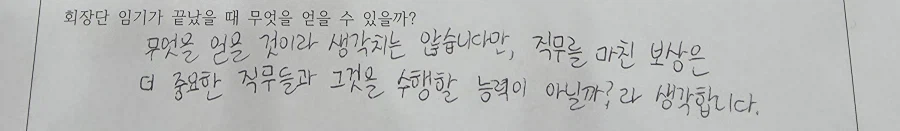 회장단 임기가 끝났을 때 무엇을 얻을 수 있을까?
무엇을 얻을 것이라 생각치는 않습니다만, 직무를 마친 보상은
더 중요한 직무들과 그것을 수행할 능력이 아닐까?라 생각합니다.